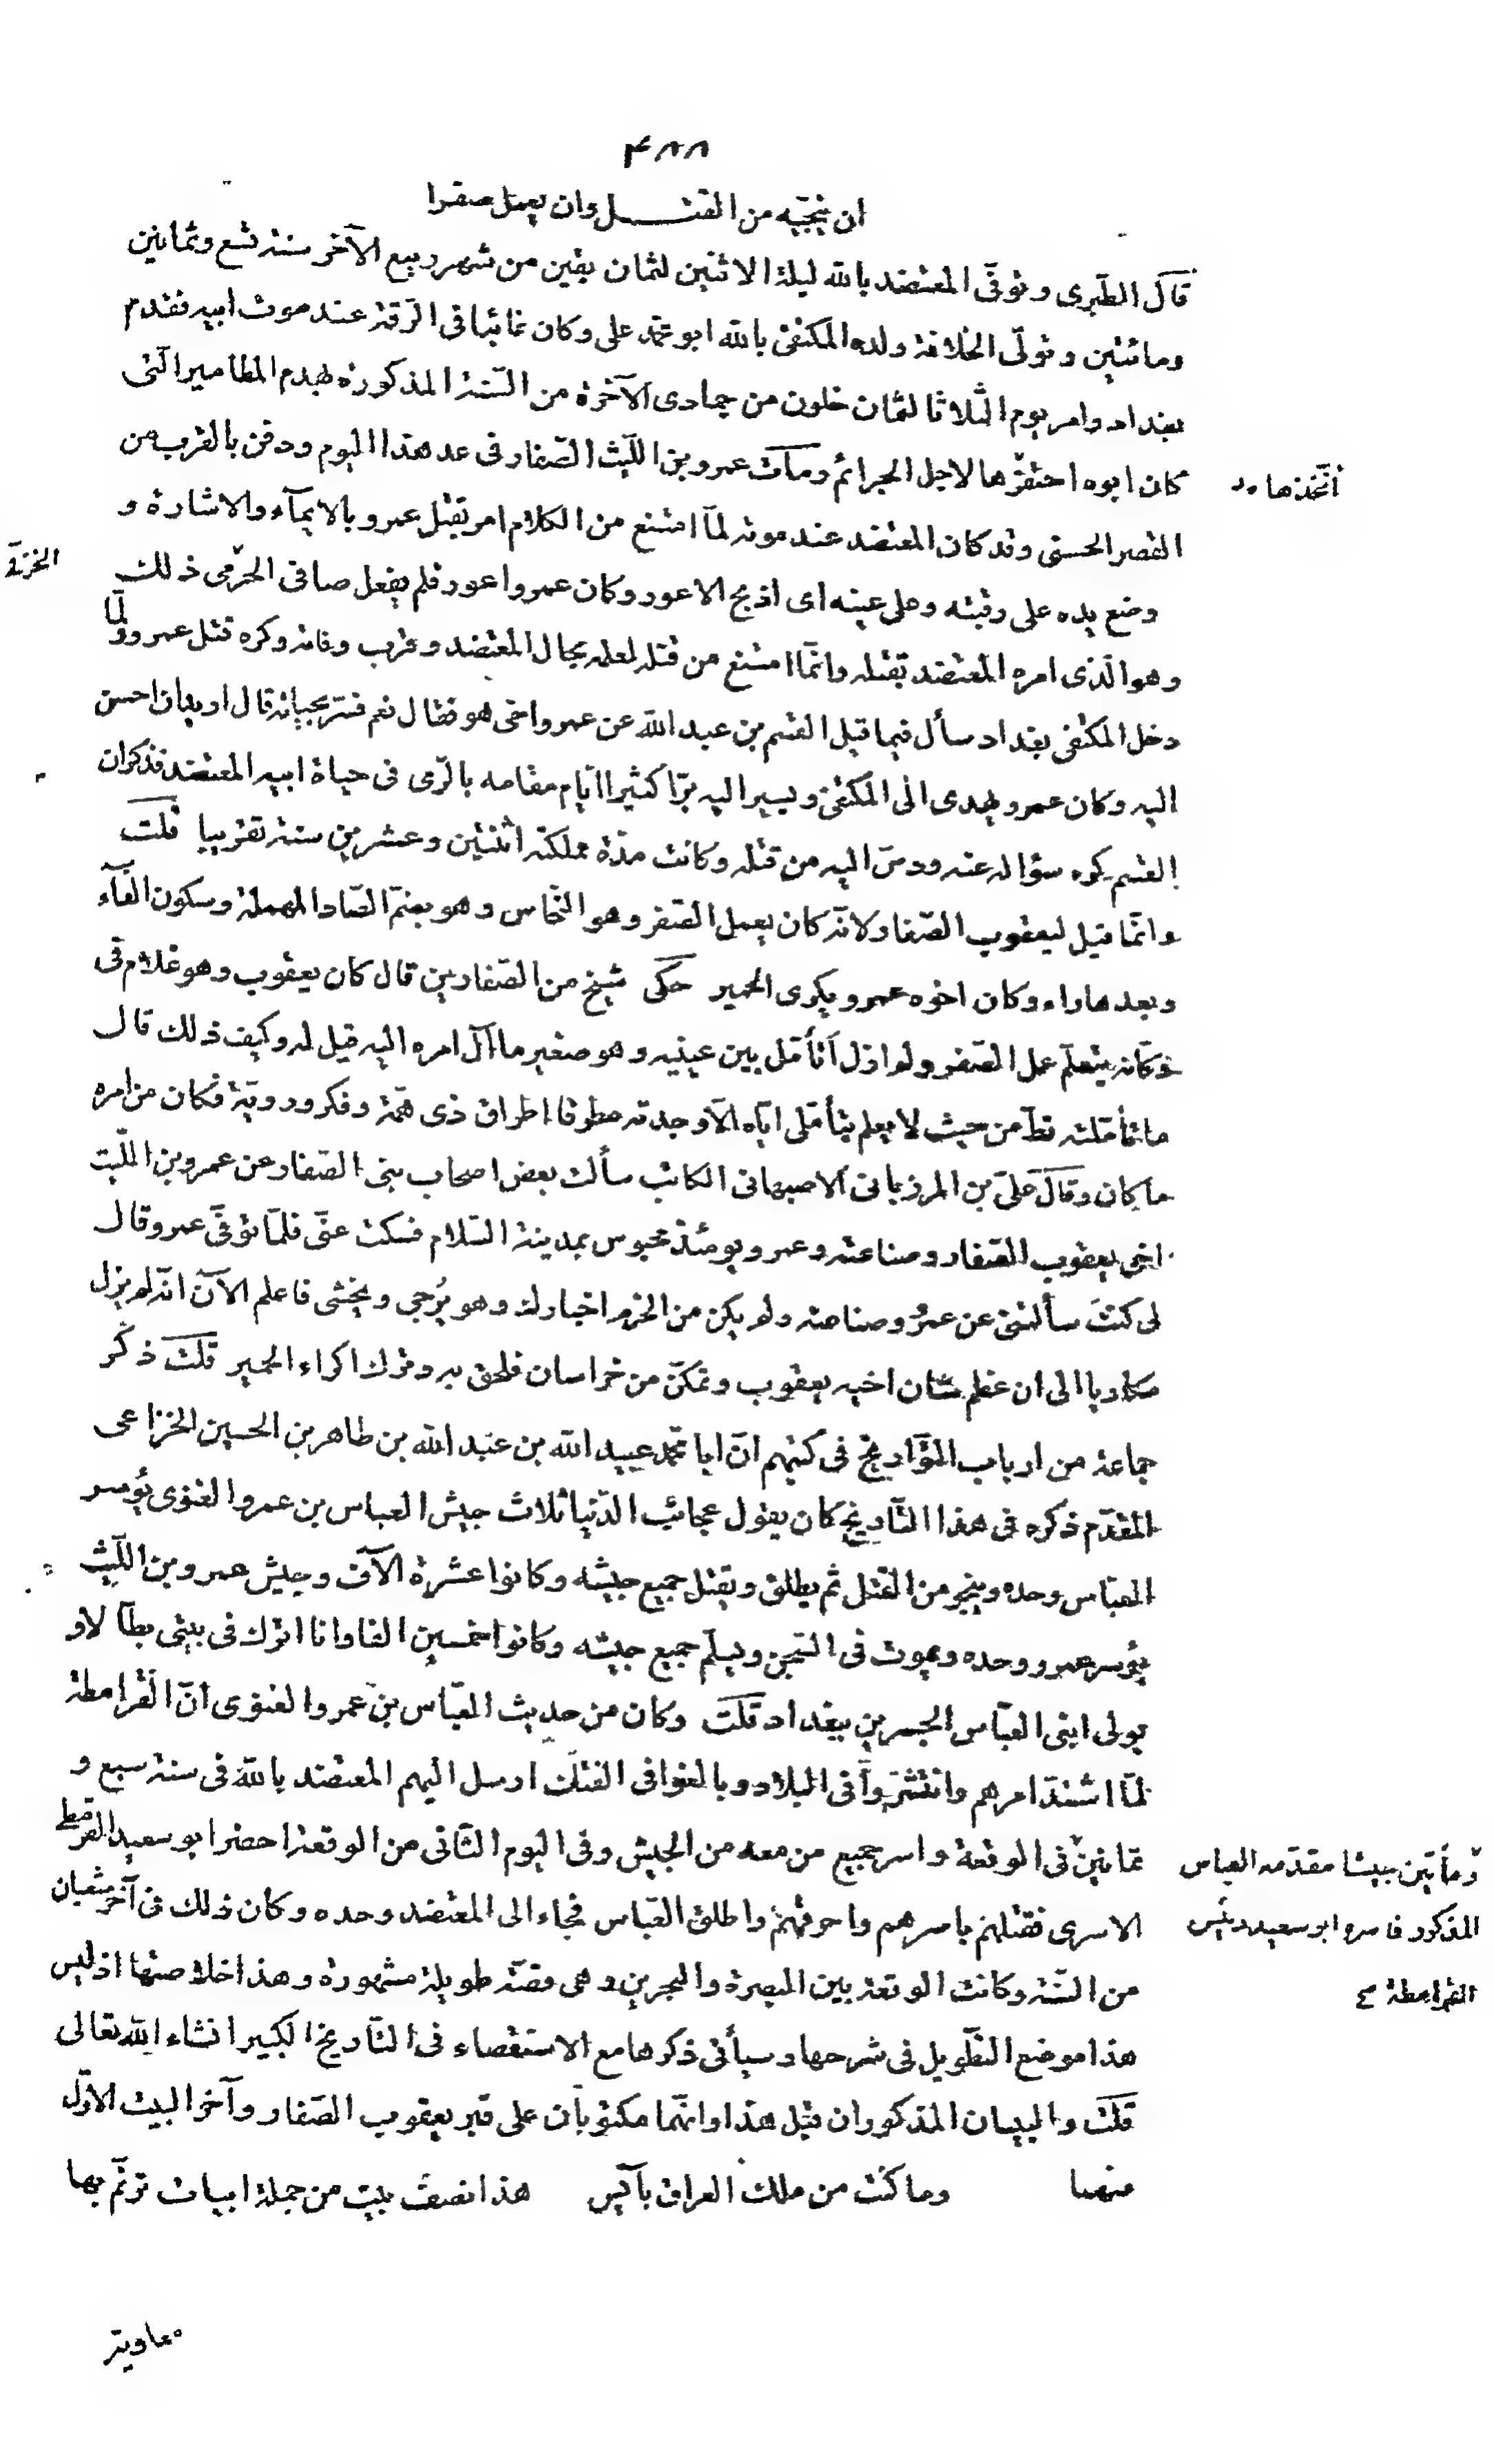 ۴۸۸
ان ينجيه من القتل وان يعمل صفرا
قال الطبرى وتوفّى المعتضد بالله ليلة الاثنين لثمان بقين من شهر ربيع الآخر سنة تسع وثمانين
ومائتين وتولّى الخلافة ولده المكتفى بالله ابو محمّد على وكان غائبا فى الرّقة عند موت ابيه فقدم
بغداد وامر يوم الثلاثا لثمان خلون من جمادى الآخرة من السّنة المذكورة بهدم المطامير الّتى
كان ابوه احتفرها لاجل الجرائم ومات عمرو بن اللّيث الصّفار فى غد هذا اليوم ودفن بالقرب من
اتّخذها
القصر الحسنى وقد كان المعتضد عند موته لمّا امتنع من الكلام امر بقتل عمرو بالايمآء والاشارة و
وضع يده على رقبته وعلى عينه اى اذبح الاعور وكان عمرو اعور فلم يفعل صافى الحرّمى ذلك
الخرّمى
وهو الّذى امره المعتضد بقتله وانّما امتنع من قتله لعلمه بحال المعتضد وقرب وفاته وكره قتل عمرو ولمّا
دخل المكتفى بغداد سأل فيما قيل القسم بن عبد الله عن عمرو احى هو فقال نعم فسرّ بحياته قال اريد ان احسن
اليه وكان عمرو يهدى الى المكتفى ويسير اليه برّا كثيرا ايّام مقامه بالرّى فى حياة ابيه المعتضد فذكر ان
القسم كره سؤاله عنه ودسّ اليه من قتله وكانت مدّة مملكته اثنتين وعشرين سنة تقريبا قلت
وانّما قيل ليعقوب الصّفار لانّه كان يعمل الصّفر وهو النّحاس وهو بضمّ الصّاد المهملة وسكون الفآء
وبعدها راء وكان اخوه عمرو يكرى الحمير حكى شيخ من الصّفارين قال كان يعقوب وهو غلام فى
دكّانه يتعلّم عمل الصّفر ولم ازل اتأمّل بين عينيه وهو صغير ما آل امره اليه قيل له وكيف ذلك قال
ما تأمّلته قطّ من حيث لا يعلم بتأمّلى ايّاه الّا وجدته مطرقا اطراق ذى همّة وفكر ورويّة فكان من امره
ما كان وقال علىّ بن المرزبانى الاصبهانى الكاتب سألت بعض اصحاب بنى الصّفار عن عمرو بن اللّيث
اخى يعقوب الصّفار وصناعته وعمرو يومئذ محبوس بمدينة السّلام فسكت عنّى فلمّا توفّى عمرو قال
لى كنتَ سألتنى عن عمرو وصناعته ولم يكن من الحزم اخبارك وهو يُرجى ويخشى فاعلم الآن انّه لم يزل
مكاريا الى ان عظم شان اخيه يعقوب وتمكّن من خراسان فلحق به وترك اكراء الحمير قلت ذكر
جماعة من ارباب التّواريخ فى كتبهم انّ ابا محمّد عبيد الله بن عبد الله بن طاهر بن الحسين الخزاعى
المقدّم ذكره فى هذا التّاريخ كان يقول عجائب الدّنيا ثلاث جيش العباس بن عمرو الغنوى يُؤسر
العبّاس وحده وينجو من القتل ثم يطلق ويقتل جميع جيشه وكانوا عشرة آلاف وجيش عمرو بن اللّيث
يؤسر عمرو وحده ويموت فى السّجن ويسلم جميع جيشه وكانوا خمسين الفا وانا اترك فى بيتى بطّالا و
يولى ابنى العبّاس الجسرين ببغداد قلت وكان من حديث العبّاس بن عمرو الغنوى انّ القرامطة
لمّا اشتدّ امرهم وانتشروا فى البلاد وبالغوا فى القتل ارسل اليهم المعتضد بالله فى سنة سبع و
ثمانين فى الوقعة واسر جميع من معه من الجيش وفى اليوم الثّانى من الوقعة احضر ابو سعيد القرمطى
ومأتين جيشا مقدّمه العباس
الاسرى فقتلهم باسرهم واحرقهم واطلق العبّاس فجاء الى المعتضد وحده وكان ذلك فى آخر شعبان
المذكور فاسره ابو سعيد رئيس
من السّنة وكانت الوقعة بين البصرة والبحرين وهى قصّة طويلة مشهورة وهذا خلاصتها اذ ليس
القرامطة
هذا موضع التّطويل فى شرحها وسيأتى ذكرها مع الاستقصاء فى التّاريخ الكبير انشاء الله تعالى
قلت والبيتان المذكوران قبل هذا وانّهما مكتوبان على قبر يعقوب الصّفار وآخر البيت الاوّل
منهما وما كنت من ملك العراق بآئس هذا نصف بيت من جملة ابيات ترنّم بها
معاوية